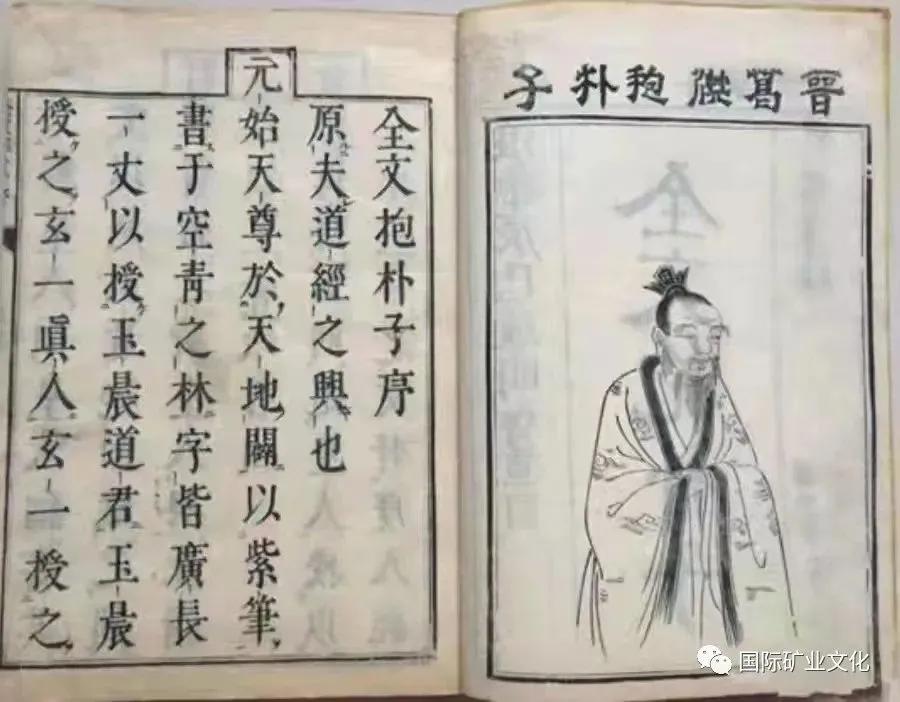 晉葛僊抱朴子
全文抱朴子序
原夫道經之興也
元始天尊於天地闢以紫筆
書于空青之林字皆廣長
一丈以授玉晨道君玉晨
授之玄一眞人玄一授之
国际矿业文化